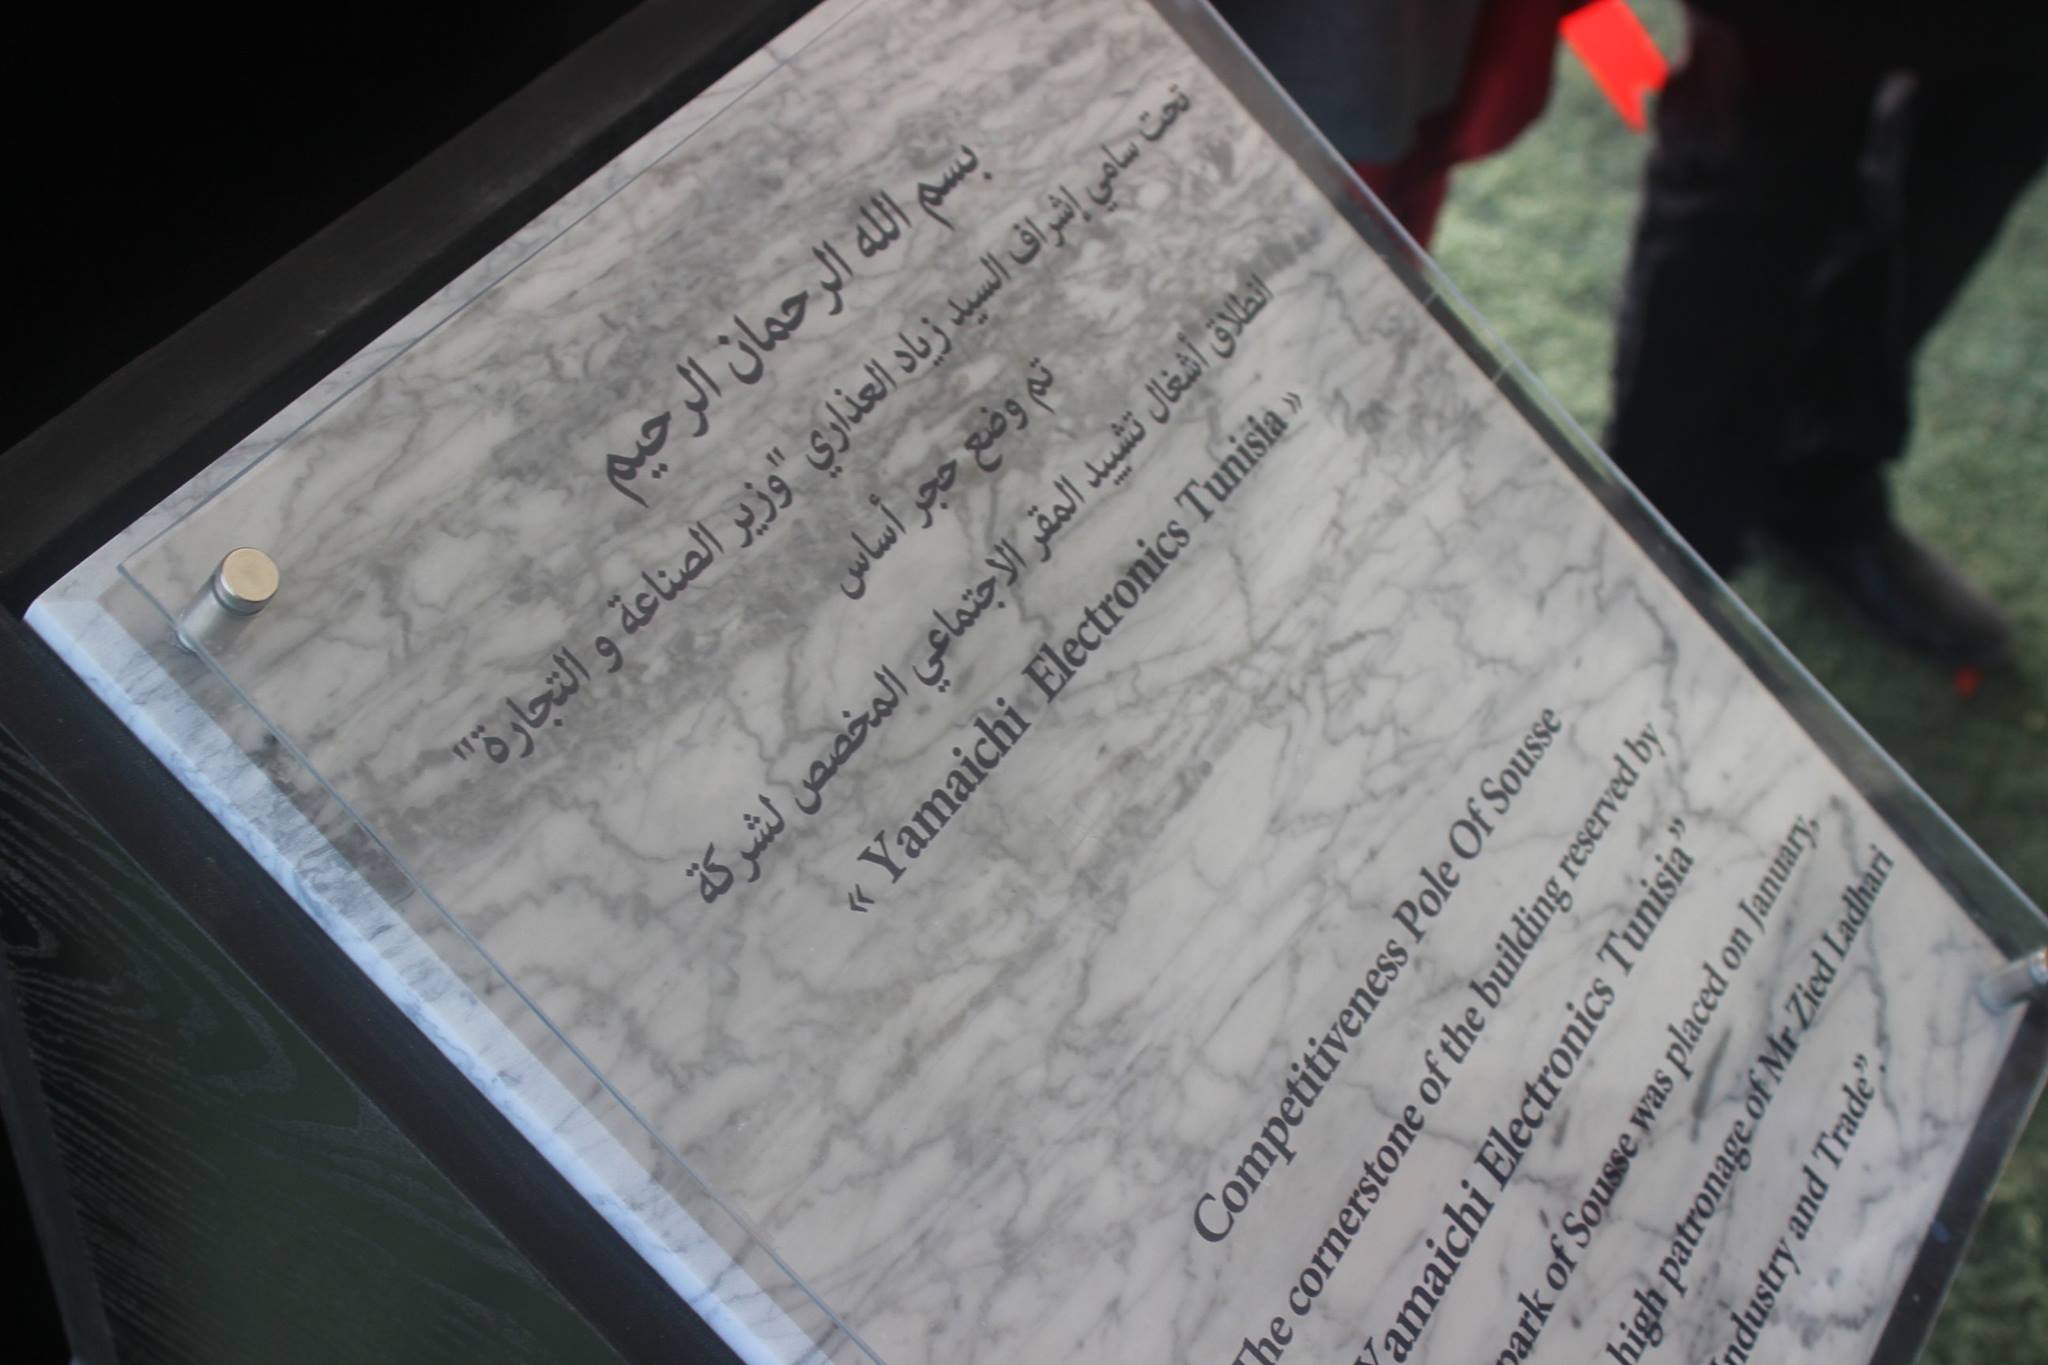 بسم الله الرحمان الرحيم
تحت سامي إشراف السيد زياد العذاري "وزير الصناعة و التجارة"
تم وضع حجر أساس
انطلاق أشغال تشييد المقر الاجتماعي المخصص لشركة
« Yamaichi Electronics Tunisia »
Competitiveness Pole Of Sousse
The cornerstone of the building reserved by
Yamaichi Electronics Tunisia”
park of Sousse was placed on January,
high patronage of Mr Zied Ladhari
Industry and Trade”.